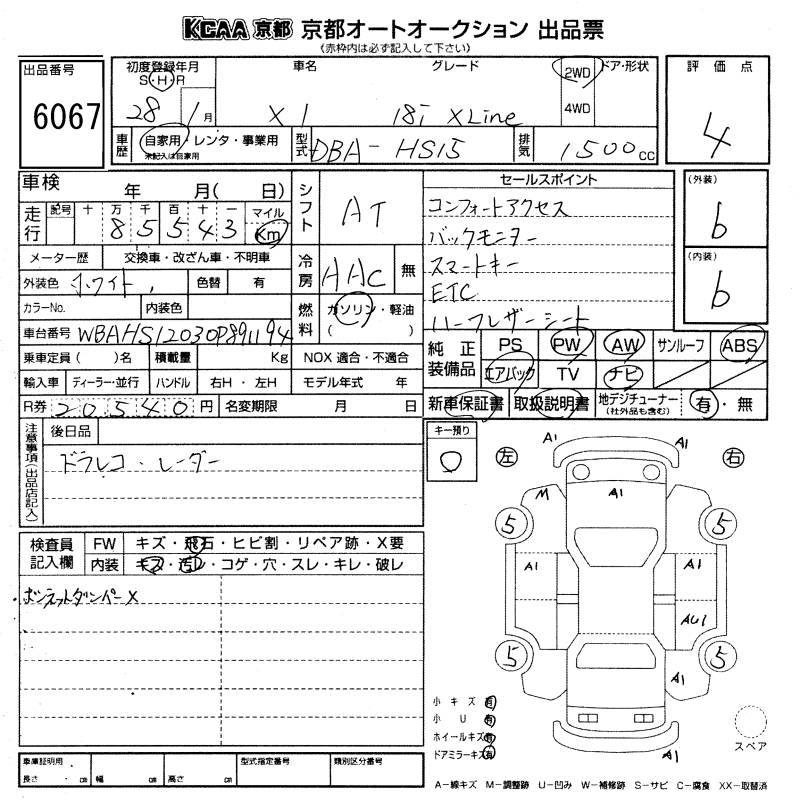 KCAA 京都 京都オートオークション 出品票
(赤枠内は必ず記入して下さい)
出品番号
6067
初度登録年月
S・H・R
28 1月
車名
X1
グレード
18i xLine
2WD
4WD
ドア・形状
評価点
4
車歴
自家用・レンタ・事業用
未記入は自家用
型式
DBA-HS15
排気
1500cc
車検 年 月( 日)
シフト
AT
走行
記号 十 万 千 百 十 一 マイル
8 5 5 4 3 Km
メーター歴 交換車・改ざん車・不明車
冷房
AAC 無
外装色 ホワイト 色替 有
カラーNo. 内装色
燃料
ガソリン・軽油
( )
車台番号 WBAHS12030P891194
乗車定員( )名 積載量 Kg NOX適合・不適合
輸入車 ディーラー・並行 ハンドル 右H・左H モデル年式 年
R券 20540円 名変期限 月 日
セールスポイント
コンフォートアクセス
バックモニター
スマートキー
ETC
ハーフレザーシート
(外装)
6
(内装)
6
純正装備品
PS PW AW サンルーフ ABS
エアバック TV ナビ
新車保証書 取扱説明書 地デジチューナー(社外品も含む) 有・無
注意事項(出品店記入)
後日品
ドラレコ・レーダー
キー預り
0
検査員記入欄
FW キズ・飛石・ヒビ割・リペア跡・X要
内装 キズ・汚レ・コゲ・穴・スレ・キレ・破レ
・ボンネットダンパーX
左
右
A1
A1
M
A1
5
5
A1
A1
AU1
5
5
A1
A1
小キズ 有
小U 有
ホイールキズ 有
ドアミラーキズ 有
スペア
車庫証明用
長さ ・ cm 幅 cm 高さ cm
型式指定番号
類別区分番号
A-線キズ M-調整跡 U-凹み W-補修跡 S-サビ C-腐食 XX-取替済